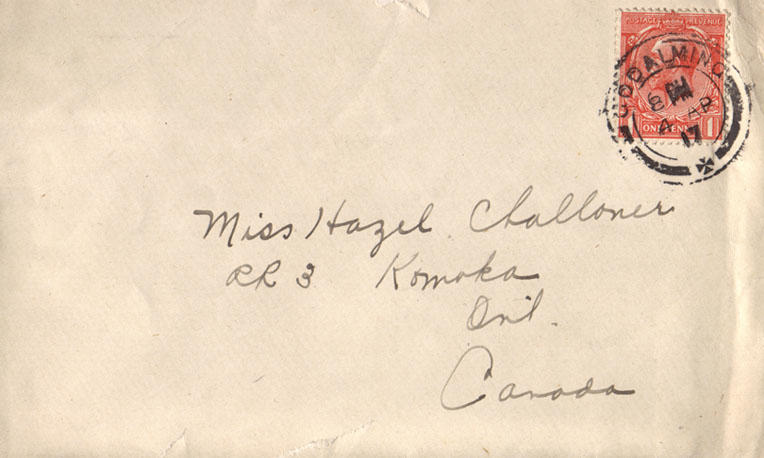 POSTAGE REVENUE
GODALMING
8 PM
4 AP
17
ONE PENNY 1
Miss Hazel Challoner
RR 3 Komoka
Ont.
Canada